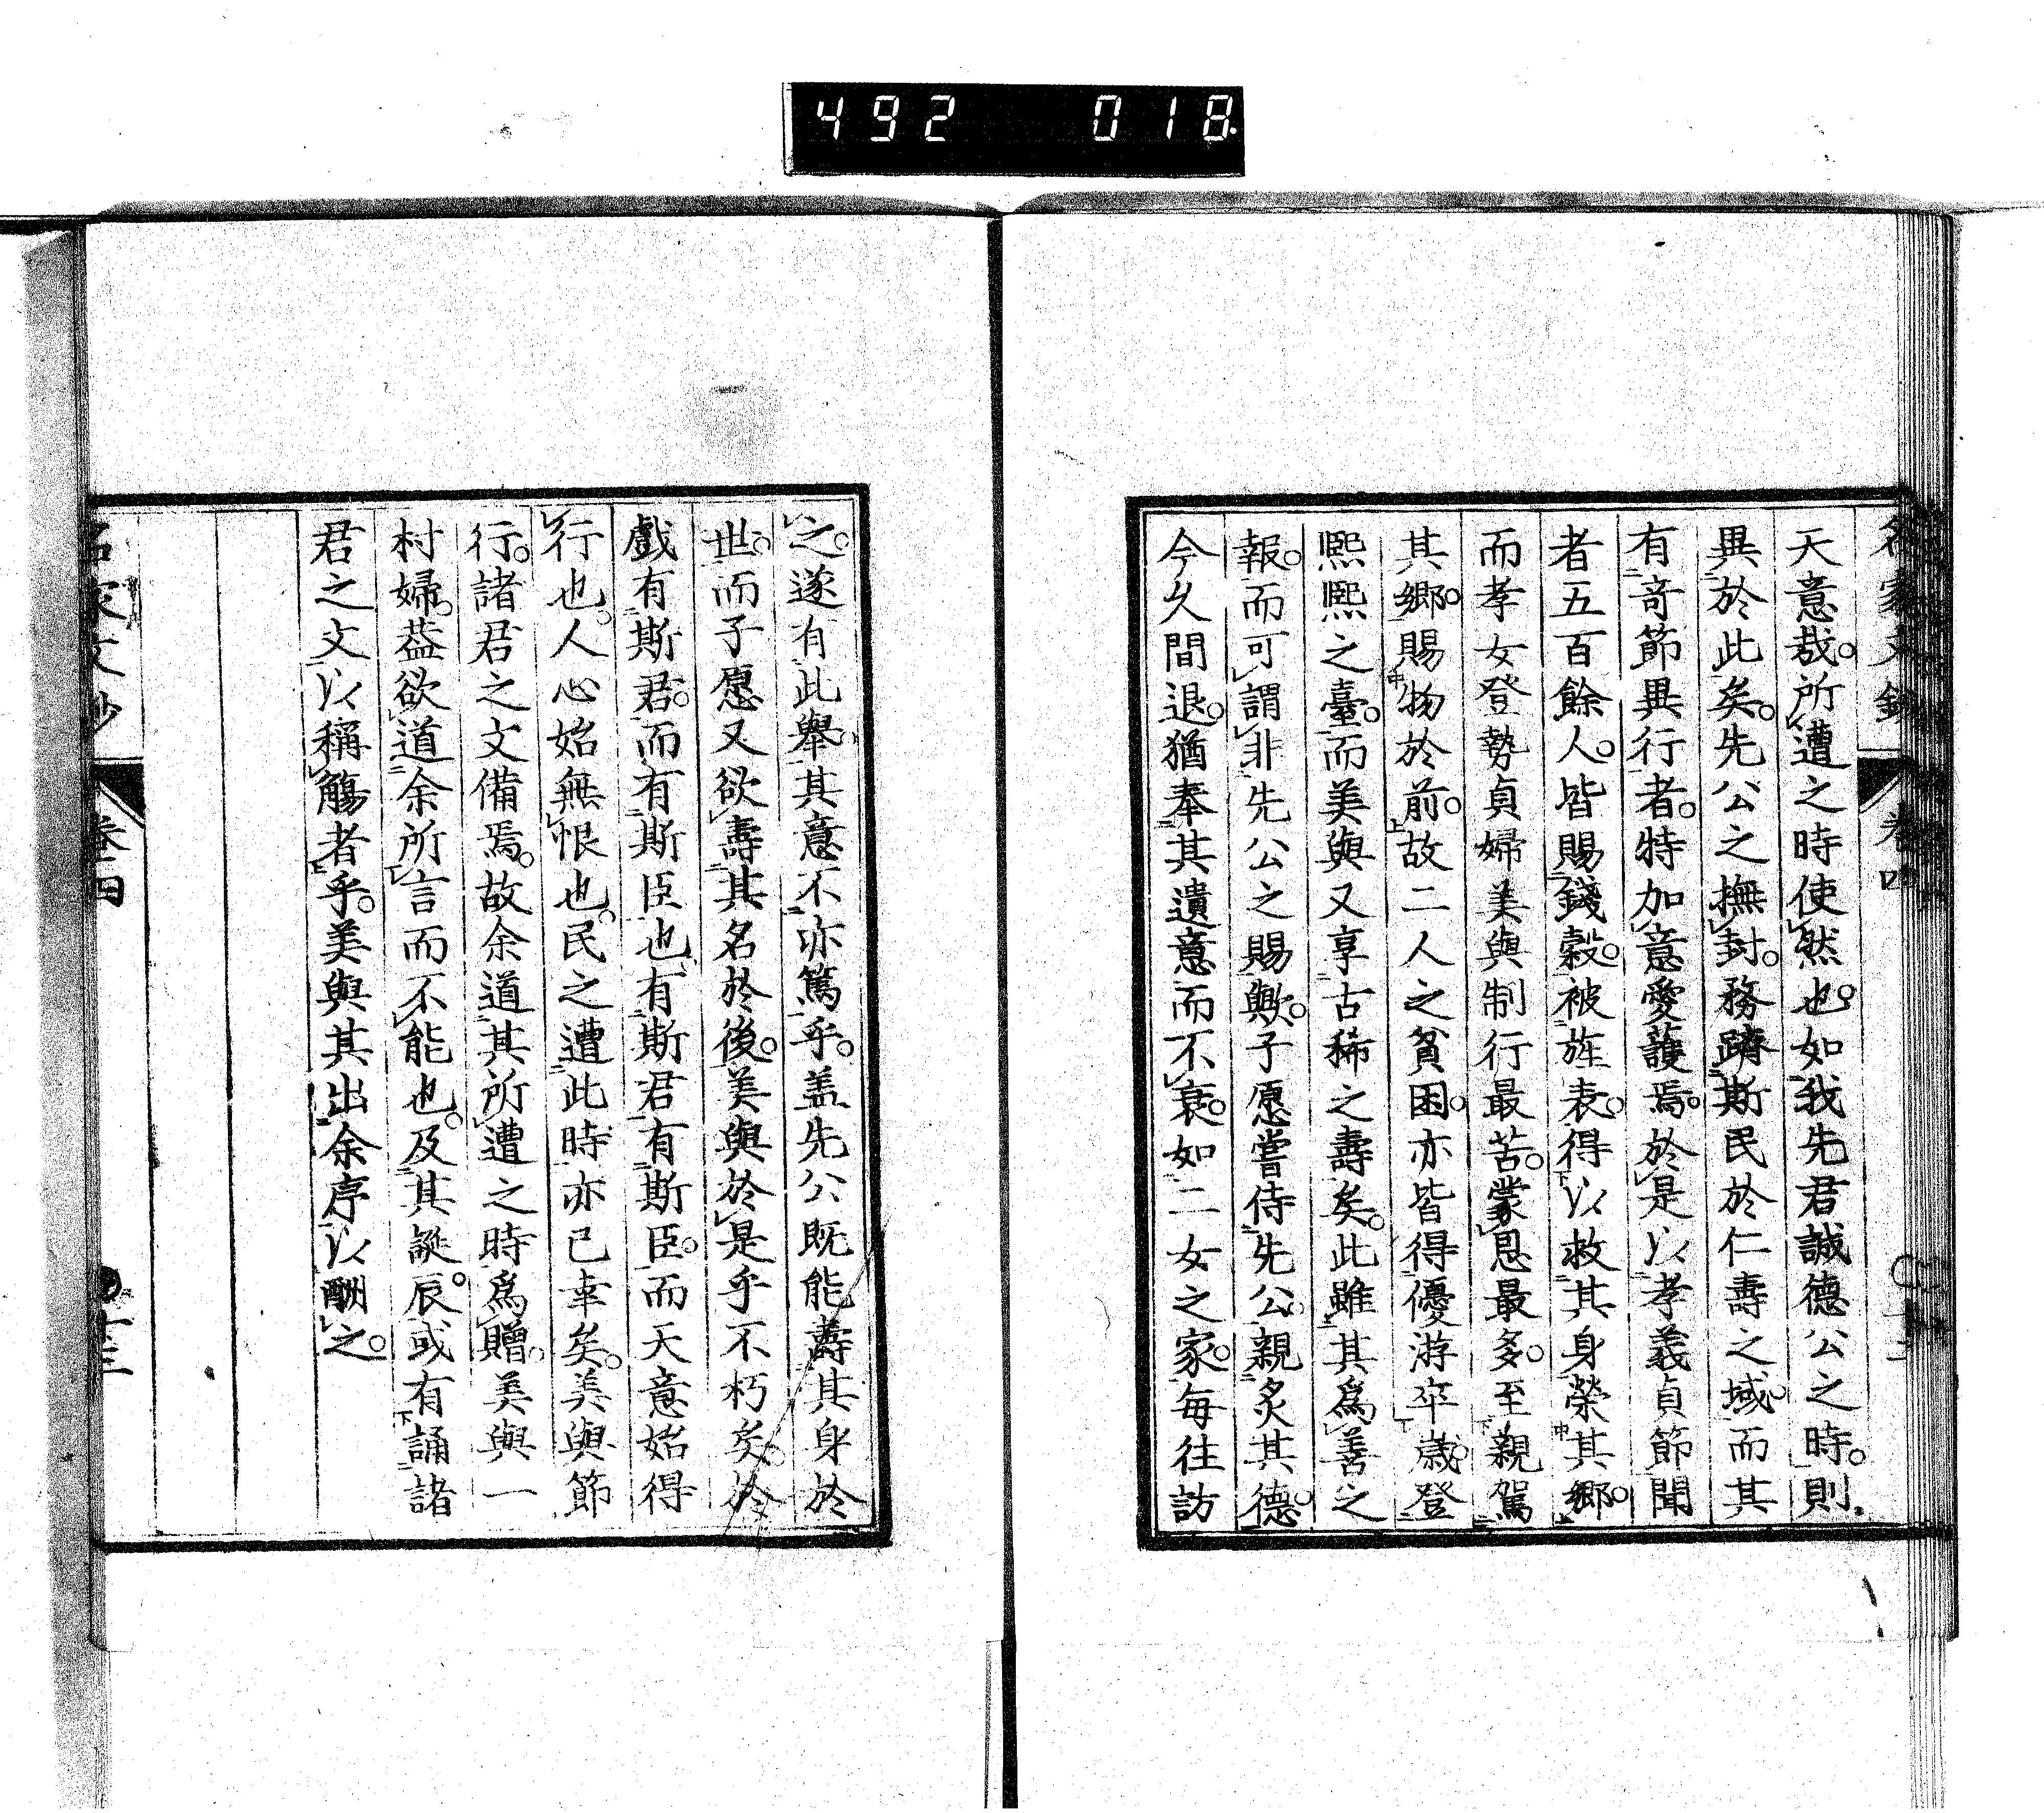 492 018
天意哉。所遭之時使然也。如我先君誠德公之時。則
異於此矣。先公之撫封。務躋斯民於仁壽之域。而其
有奇節異行者。特加意愛護焉。於是以孝義貞節聞
者五百餘人。皆賜錢穀。被旌表。得以救其身榮其鄉。
而孝女登勢貞婦美與制行最苦。蒙恩最多。至親駕
其鄉。賜物於前。故二人之貧困。亦皆得優游卒歲。登
熙熙之臺。而美與又享古稀之壽矣。此雖其為善之
報。而可謂非先公之賜歟。子愿嘗侍先公。親炙其德。
今久間退。猶奉其遺意而不衰。如二女之家。每往訪
之。遂有此舉。其意不亦篤乎。盖先公既能壽其身於
世。而子愿又欲壽其名於後。美與於是乎不朽矣。於
戲有斯君。而有斯臣也。有斯君有斯臣。而天意始得
行也。人心始無恨也。民之遭此時亦已幸矣。美與節
行。諸君之文備焉。故余道其所遭之時爲贈。美與一
村婦。葢欲道余所言而不能也。及其誕辰。或有誦諸
君之文以稱觴者乎。美與其出余序以酬之。
名家文鈔 卷四 十三